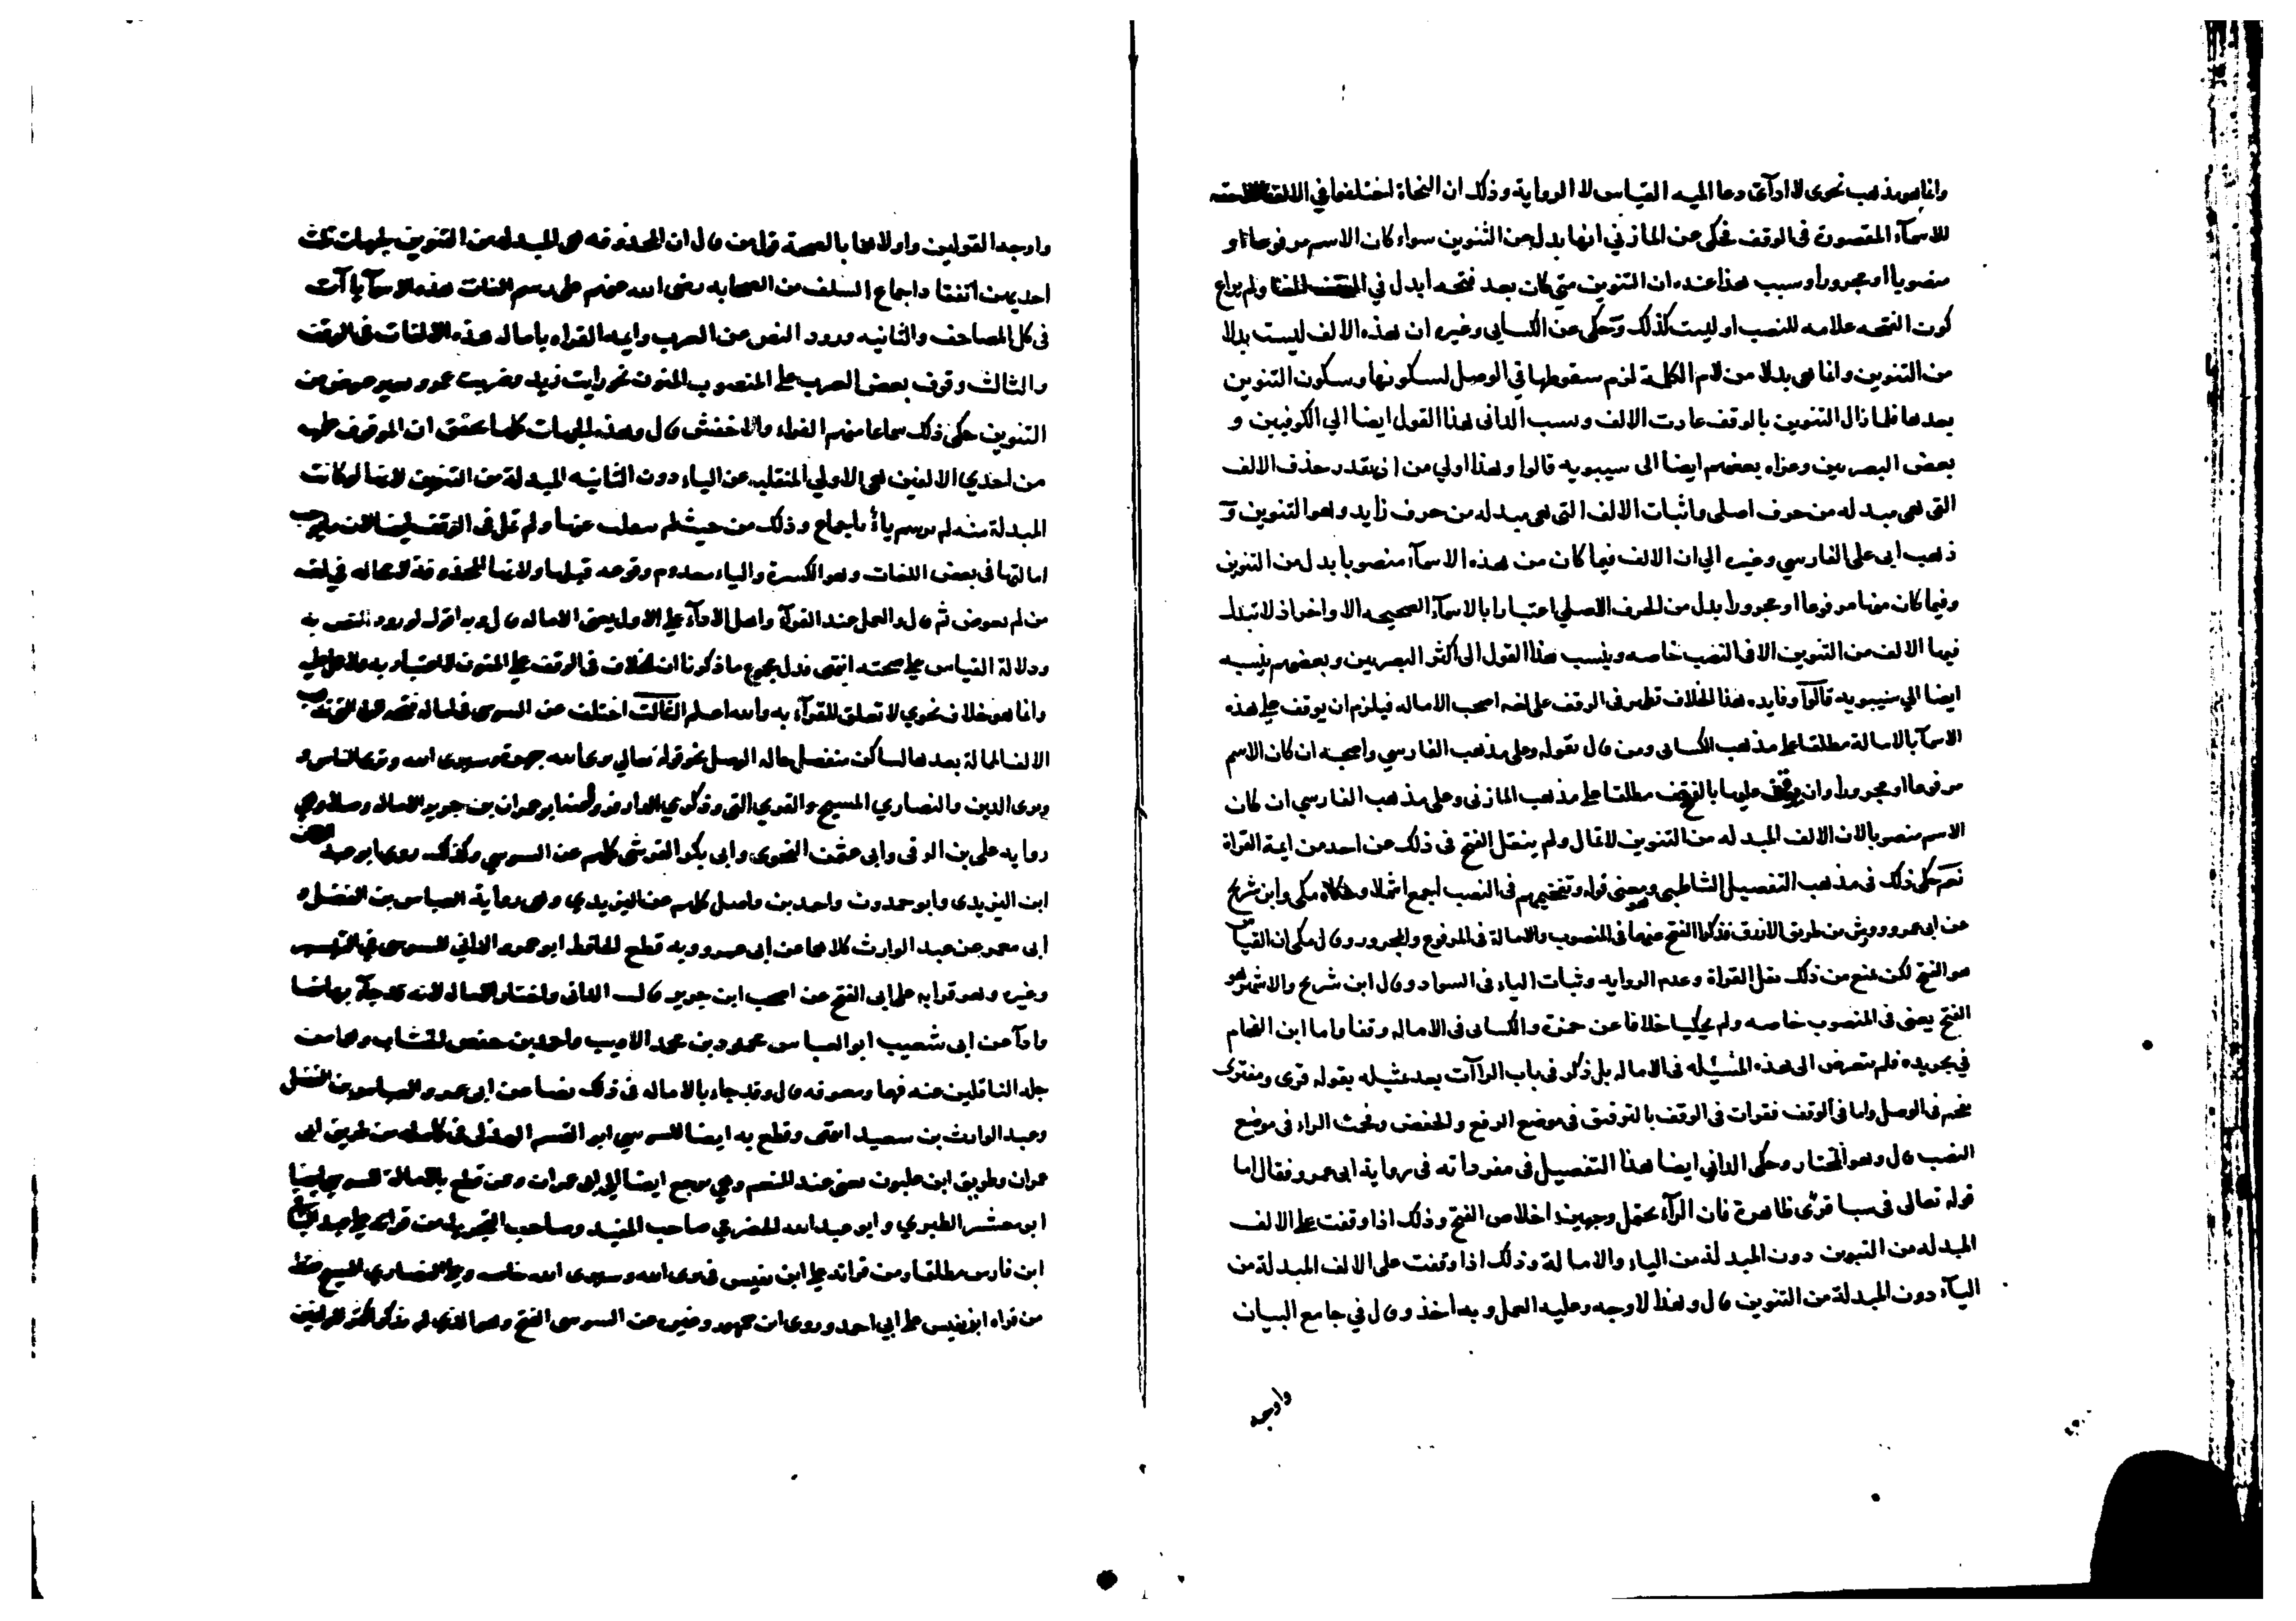 وانما هو مذهب نحوي لا ادآءي دعا اليه القياس لا الرواية وذلك ان النحاة اختلفوا في الالف اللاحقه
للاسمآء المقصورة في الوقف فحكى عن المازني انها بدل من التنوين سواء كان الاسم مرفوعا او
منصوبا او مجرورا وسبب هذا عنده ان التنوين متى كان بعد فتحه ابدل في الوقف الفا ولم يراع
كون الفتحه علامه للنصب او ليست كذلك وحكى عن الكسايي وغيره ان هذه الالف ليست بدلا
من التنوين وانما هي بدلا من لام الكلمة لزم سقوطها في الوصل لسكونها وسكون التنوين
بعدها فلما زال التنوين بالوقف عادت الالف ونسب الداني هذا القول ايضا الي الكوفيين و
بعض البصريين وعزاه بعضهم ايضا الى سيبويه قالوا وهذا اولي من ان يقدر حذف الالف
التي هي مبدله من حرف اصلي واثبات الالف التي هي مبدله من حرف زايد وهو التنوين و
ذهب ابى على الفارسي وغيره الي ان الالف فيما كان من هذه الاسمآء منصوبا بدل من التنوين
وفيما كان منها مرفوعا او مجرورا بدل من الحرف الاصلي اعتبارا بالاسمآء الصحيحه الاواخر اذ لا تبدل
فيها الالف من التنوين الا في النصب خاصه وينسب هذا القول الى اكثر البصريين وبعضهم ينسبه
ايضا الي سيبويه قالوا وفايده هذا الخلاف تظهر في الوقف على لغه اصحب الاماله فيلزم ان يوقف على هذه
الاسمآ بالامالة مطلقا على مذهب الكساىي ومن قال بقوله وعلى مذهب الفارسي واصحبه ان كان الاسم
مرفوعا او مجرورا وان يوقف عليها بالفتح مطلقا على مذهب المازني وعلى مذهب الفارسي ان كان
الاسم منصوبا لان الالف المبدله من التنوين لا تمال ولم ينقل الفتح في ذلك عن احد من ايمة القراة
نعم حكي ذلك في مذهب التفصيل الشاطبي وهو معنى قوله وتفخيمهم في النصب اجمع اشملا وحكاه مكي وابن شريح
عن ابي عمرو وورش من طريق الازرق فذكرا الفتح عنهما في المنصوب والامالة في المرفوع والمجرور وقال مكي ان القياس
هو الفتح لكن يمنع من ذلك نقل القراة وعدم الروايه وثبات الياء في السواد وقال ابن شريح والاشهر هو
الفتح يعنى في المنصوب خاصه ولم يحكيا خلافا عن حمزة والكسائي في الاماله وقفا واما ابن الفحام
في تجريده فلم يتعرض الى هذه المسئله في الاماله بل ذكر في باب الرآآت بعد تمثيله بقوله قرى ومفترى
يفخم في الوصل واما في الوقف فقرات في الوقف بالترقيق في موضع الرفع والخفض وفخمت الراء في موضع
النصب قال وهو المختار وحكى الداني ايضا هذا التفصيل في مفرداته في رواية ابى عمرو فقال اما
قوله تعالى في سبا قرى ظاهرة فان الرآء تحتمل وجهين اخلاص الفتح وذلك اذا وقفت على الالف
المبدله من التنوين دون المبدلة من الياء والامالة وذلك اذا وقفت على الالف المبدلة من
اليآء دون المبدلة من التنوين قال وهذا الاوجه وعليه العمل وبه اخذ وقال في جامع البيان
واوجه
واوجه القولين واولاهما بالصحة قول من قال ان المحذوفه هي المبدله من التنوين لجهات ثلث
احديهن انعقاد اجماع السلف من الصحابه رضى الله عنهم على رسم الفات هذه الاسمآء ياآت
في كل المصاحف والثانيه ورود النص عن العرب وايمه القراه باماله هذه الالفات في الوقف
والثالث وقوف بعض العرب على المنصوب المنون نحو رايت زيد وضربت عمرو بغير عوض من
التنوين حكى ذلك سماعا منهم الفراء والاخفش قال وهذه الجهات كلها تحقق ان الموقوف عليه
من احدي الالفين هي الاولي المنقلبه عن الياء دون الثانيه المبدلة من التنوين لانها لو كانت
المبدلة منه لم ترسم ياء باجماع وذلك من حيث لم تنقلب عنها ولم تمل في الوقف ايضا لان ما يوجب
امالتها في بعض اللغات وهو الكسرة والياء معدوم وقوعه قبلها ولانها المحذوفة لا محاله في لغه
من لم يعوض ثم قال والعمل عند القرآء واهل الادآء على الاول يعني الاماله قال وبه اقول لورود النص به
ودلالة القياس على صحته انتهى فدل مجموع ما ذكرنا ان الخلاف في الوقف على المنون لا اعتبار به ولا عمل عليه
وانما هو خلاف نحوي لا تعلق للقرآء به والله اعلم الثالث اختلف عن السوسي في اماله فتحه الرا التي تذهب
الالف الممالة بعدها لساكن منفصل حاله الوصل نحو قوله تعالي نرى الله جهرة وسيرى الله وترى الناس و
ويرى الدين والنصاري المسيح والقري التي وذكري الدار فروى عنه ابو عمران بن جرير الاماله وصلا وهي
روايه علي بن الرقي وابي عثمن النحوي وابي بكر القرشي كلهم عن السوسي وكذلك روى ابو عبد الرحمن
ابن اليزيدى وابو حمدون واحمد بن واصل كلهم عن اليزيدي وهي رواية العباس بن الفضل و
ابي معمر عن عبد الوارث كلاهما عن ابي عمرو وبه قطع الحافظ ابو عمرو الداني للسوسي في التيسير
وغيره وهو قراته على ابي الفتح عن اصحب ابن جرير قال الداني واختار الاماله لانه قد جآء بها نصا
وادآء عن ابي شعيب ابو العباس محمود بن محمد الاديب واحمد بن حفص الخشاب وهما من
جله الناقلين عنه فهما ومعرفه قال وقد جاء بالاماله في ذلك نصا عن ابى عمرو العباس بن الفضل
وعبد الوارث بن سعيد انتهى وقطع به ايضا للسوسي ابو القسم الهذلى في كامله من طريق ابى
عمران وطريق ابن غلبون يعنى عبد المنعم وهي ترجع ايضا الي ابي عمران وممن قطع بالامالة للسوسي ايضا
ابو معشر الطبري وابو عبد الله الحضرمي صاحب المفيد وصاحب التجريد من قراته على عبد الباقي
ابن فارس مطلقا ومن قراته على ابن نفيس في نرى الله وسيرى الله خاصه وعلى النصاري المسيح فقط
من قراه ابن نفيس على ابي احمد وروى ابن جمهور وغيره عن السوسي الفتح وهو الذي لم يذكر اكثر المولفين